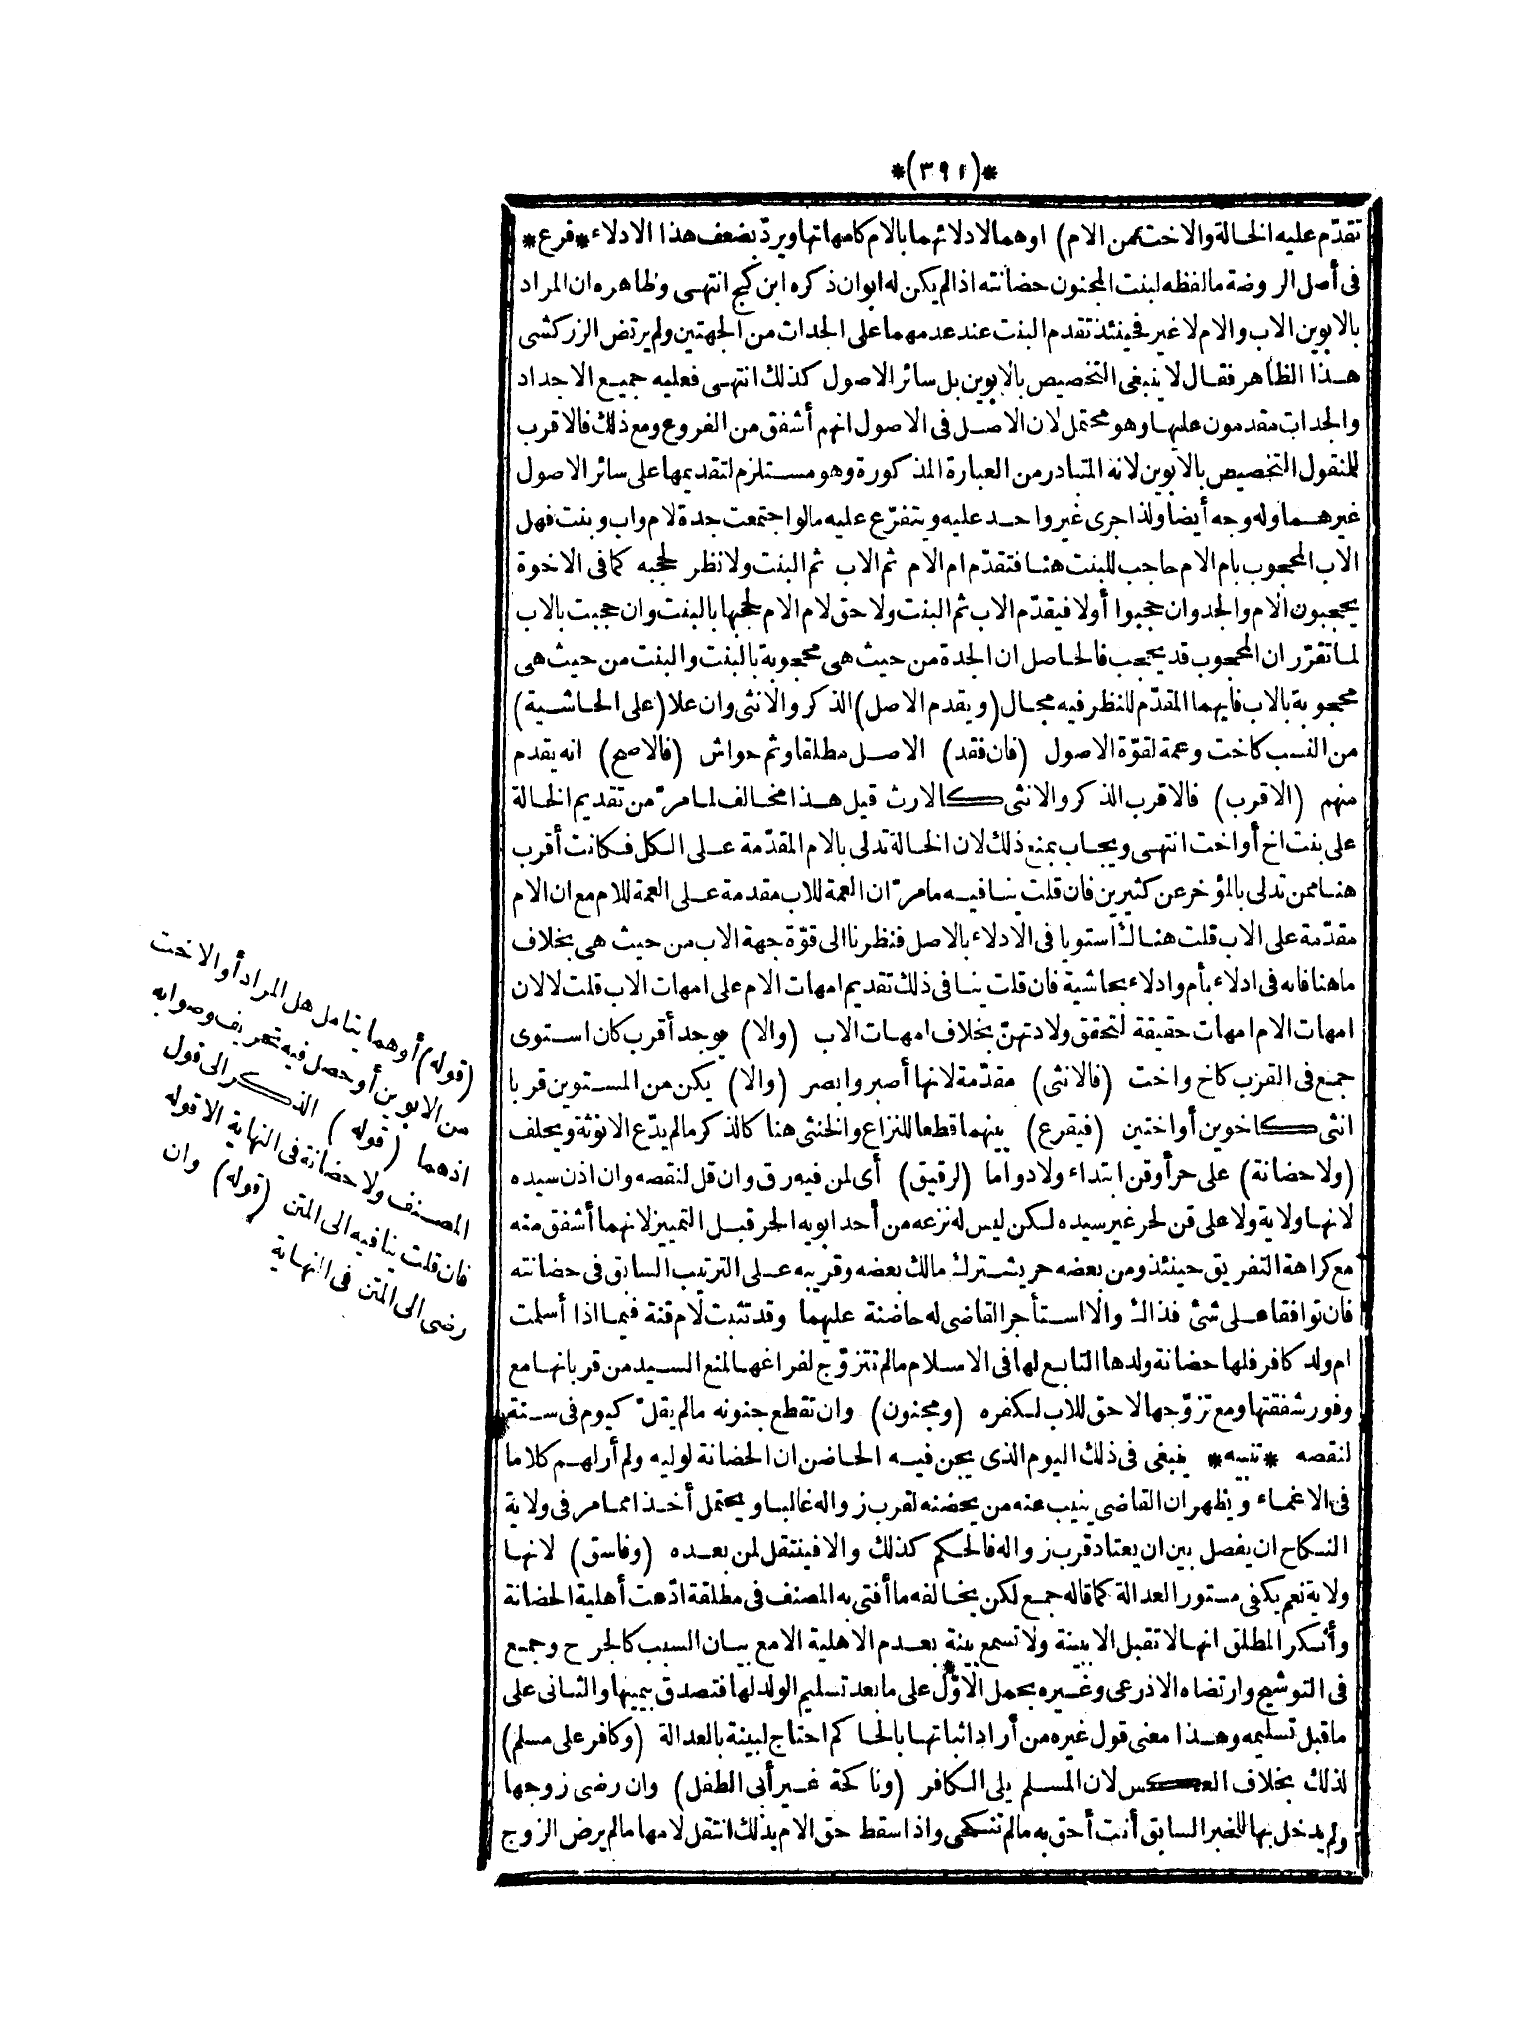 *(٣٩١)*
تقدّم عليه الخالة والاخت من الام) اوهما لادلائهما بالام كامهاتها ويردّ بضعف هذا الادلاء *فرع*
فى أصل الروضة مالفظه لبنت المجنون حضانته اذا لم يكن له ابوان ذكره ابن كج انتهى وظاهره ان المراد
بالابوين الاب والام لا غير فحينئذ تقدم البنت عند عدمهما على الجدات من الجهتين ولم يرتض الزركشى
هذا الظاهر فقال لا ينبغى التخصيص بالابوين بل سائر الاصول كذلك انتهى فعليه جميع الاجداد
والجدات مقدمون عليها وهو محتمل لان الاصل فى الاصول انهم أشفق من الفروع ومع ذلك فالاقرب
للمنقول التخصيص بالابوين لانه المتبادر من العبارة المذكورة وهو مستلزم لتقديمها على سائر الاصول
غيرهما وله وجه أيضا ولذا جرى غير واحد عليه ويتفرّع عليه مالو اجتمعت جدة لام واب وبنت فهل
الاب المحجوب بام الام حاجب للبنت هنا فتقدّم ام الام ثم الاب ثم البنت ولا نظر لحجبه كما فى الاخوة
يحجبون الام والجد وان حجبوا أولا فيقدّم الاب ثم البنت ولا حق لام الام لحجبها بالبنت وان حجبت بالاب
لما تقرّر ان المحجوب قد يحجب فالحاصل ان الجدة من حيث هى محجوبة بالبنت والبنت من حيث هى
محجوبة بالاب فايهما المقدّم للنظر فيه مجال (ويقدم الاصل) الذكر والانثى وان علا (على الحاشية)
من النسب كاخت وعمة لقوّة الاصول (فان فقد) الاصل مطلقا وثم حواش (فالاصح) انه يقدم
منهم (الاقرب) فالاقرب الذكر والانثى كالارث قيل هذا مخالف لما مرّ من تقديم الخالة
على بنت اخ أو اخت انتهى ويجاب بمنع ذلك لان الخالة تدلى بالام المقدّمة على الكل فكانت أقرب
هنا ممن تدلى بالمؤخر عن كثيرين فان قلت ينافيه مامرّ ان العمة للاب مقدمة على العمة للام مع ان الام
مقدّمة على الاب قلت هناك استويا فى الادلاء بالاصل فنظرنا الى قوّة جهة الاب من حيث هى بخلاف
ما هنا فانه فى ادلاء بأم وادلاء بحاشية فان قلت ينافى ذلك تقديم امهات الام على امهات الاب قلت لا لان
امهات الام امهات حقيقة لتحقق ولادتهنّ بخلاف امهات الاب (والا) يوجد أقرب كان استوى
جمع فى القرب كاخ واخت (فالانثى) مقدّمة لانها أصبر وابصر (والا) يكن من المستوين قربا
انثى كاخوين أو اختين (فيقرع) بينهما قطعا للنزاع والخنثى هنا كالذكر مالم يدّع الانوثة ويحلف
(ولا حضانة) على حر أو قن ابتداء ولا دواما (لرقيق) أى لمن فيه رق وان قل لنقصه وان اذن سيده
لانها ولاية ولا على قن لحر غير سيده لكن ليس له نزعه من أحد ابويه الحر قبل التمييز لانهما أشفق منه
مع كراهة التفريق حينئذ ومن بعضه حر يشترك مالك بعضه وقريبه على الترتيب السابق فى حضانته
فان توافقا على شئ فذاك والا استأجر القاضى له حاضنة عليهما وقد تثبت لام قنة فيما اذا أسلمت
ام ولد كافر فلها حضانة ولدها التابع لها فى الاسلام مالم تتزوّج لفراغها لمنع السيد من قربانها مع
وفور شفقتها ومع تزوّجها لا حق للاب لكفره (ومجنون) وان تقطع جنونه مالم يقلّ كيوم فى سنة
لنقصه *تنبيه* ينبغى فى ذلك اليوم الذى يجن فيه الحاضن ان الحضانة لوليه ولم أر لهم كلاما
فى الاغماء ويظهر ان القاضى ينيب عنه من يحضنه لقرب زواله غالبا ويحتمل أخذا مما مر فى ولاية
النكاح ان يفصل بين ان يعتاد قرب زواله فالحكم كذلك والا فينتقل لمن بعده (وفاسق) لانها
ولاية نعم يكفى مستور العدالة كما قاله جمع لكن يخالفه ما أفتى به المصنف فى مطلقة ادّعت أهلية الحضانة
وأنكر المطلق انها لا تقبل الا ببينة ولا تسمع بينة بعدم الاهلية الا مع بيان السبب كالجرح وجمع
فى التوشيح وارتضاه الاذرعى وغيره بحمل الاوّل على ما بعد تسليم الولد لها فتصدق بيمينها والثانى على
ما قبل تسليمه وهذا معنى قول غيره من أراد اثباتها بالحاكم احتاج لبينة بالعدالة (وكافر على مسلم)
لذلك بخلاف العكس لان المسلم يلى الكافر (وناكحة غير أبى الطفل) وان رضى زوجها
ولم يدخل بها للخبر السابق أنت أحق به مالم تنكحى واذا سقط حق الام بذلك انتقل لامها مالم يرض الزوج
(قوله) أوهما يتامل هل المراد أو الاخت
من الابوين أو حصل فيه تحريف وصوابه
اذهما (قوله) الذكر الى قول
المصنف ولا حضانة فى النهاية الا قوله
فان قلت ينافيه الى المتن (قوله) وان
رضى الى المتن فى النهاية